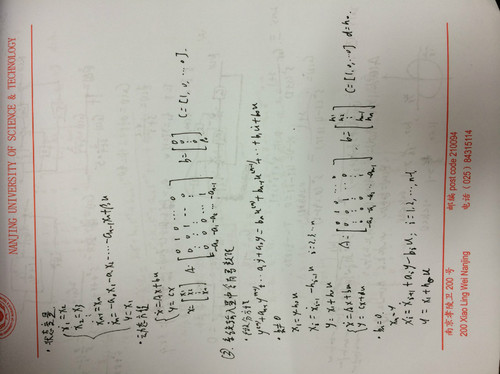 NANJING UNIVERSITY OF SCIENCE & TECHNOLOGY
· 状态变量
ẋ₁ = x₂
ẋ₂ = x₃
⋮
ẋₙ₋₁ = xₙ
ẋₙ = -a₀x₁ - a₁x₂ - ··· - aₙ₋₁xₙ + β₀u
y = x₁
· 动态方程
ẋ = Ax + bu
y = cx
x = [x₁ x₂ ⋮ xₙ] A: [0 1 0 ··· 0; 0 0 1 ··· 0; ⋮; 0 0 0 ··· 1; -a₀ -a₁ -a₂ ··· -aₙ₋₁] b = [0 0 ⋮ β₀] C = [1, 0, ··· 0].
②. 系统输入量中含有导数项
· 微分方程
y⁽ⁿ⁾ + aₙ₋₁y⁽ⁿ⁻¹⁾ + ··· a₁ẏ + a₀y = bₙu⁽ⁿ⁾ + bₙ₋₁u⁽ⁿ⁻¹⁾ + ··· + b₁u̇ + b₀u
· bₙ ≠ 0
x₁ = y - h₀u
xᵢ = ẋᵢ₋₁ - hᵢ₋₁u i = 2, 3, ··· n
y = x₁ + h₀u
ẋ = Ax + bu
y = cx + du
A = [0 1 0 ··· 0; 0 0 1 ··· 0; ⋮; 0 0 0 ··· 1; -a₀ -a₁ -a₂ ··· -aₙ₋₁] b = [h₁ h₂ ⋮ hₙ₋₁ hₙ] C = [1, 0, ··· 0] d = h₀
· bₙ = 0
xₙ = y
xᵢ = ẋᵢ₊₁ + aᵢy - bᵢu; i = 1, 2, ···, n-1
南京孝陵卫 200 号 邮编 post code 210094
200 Xiao Ling Wei Nanjing 电话 (025) 84315114